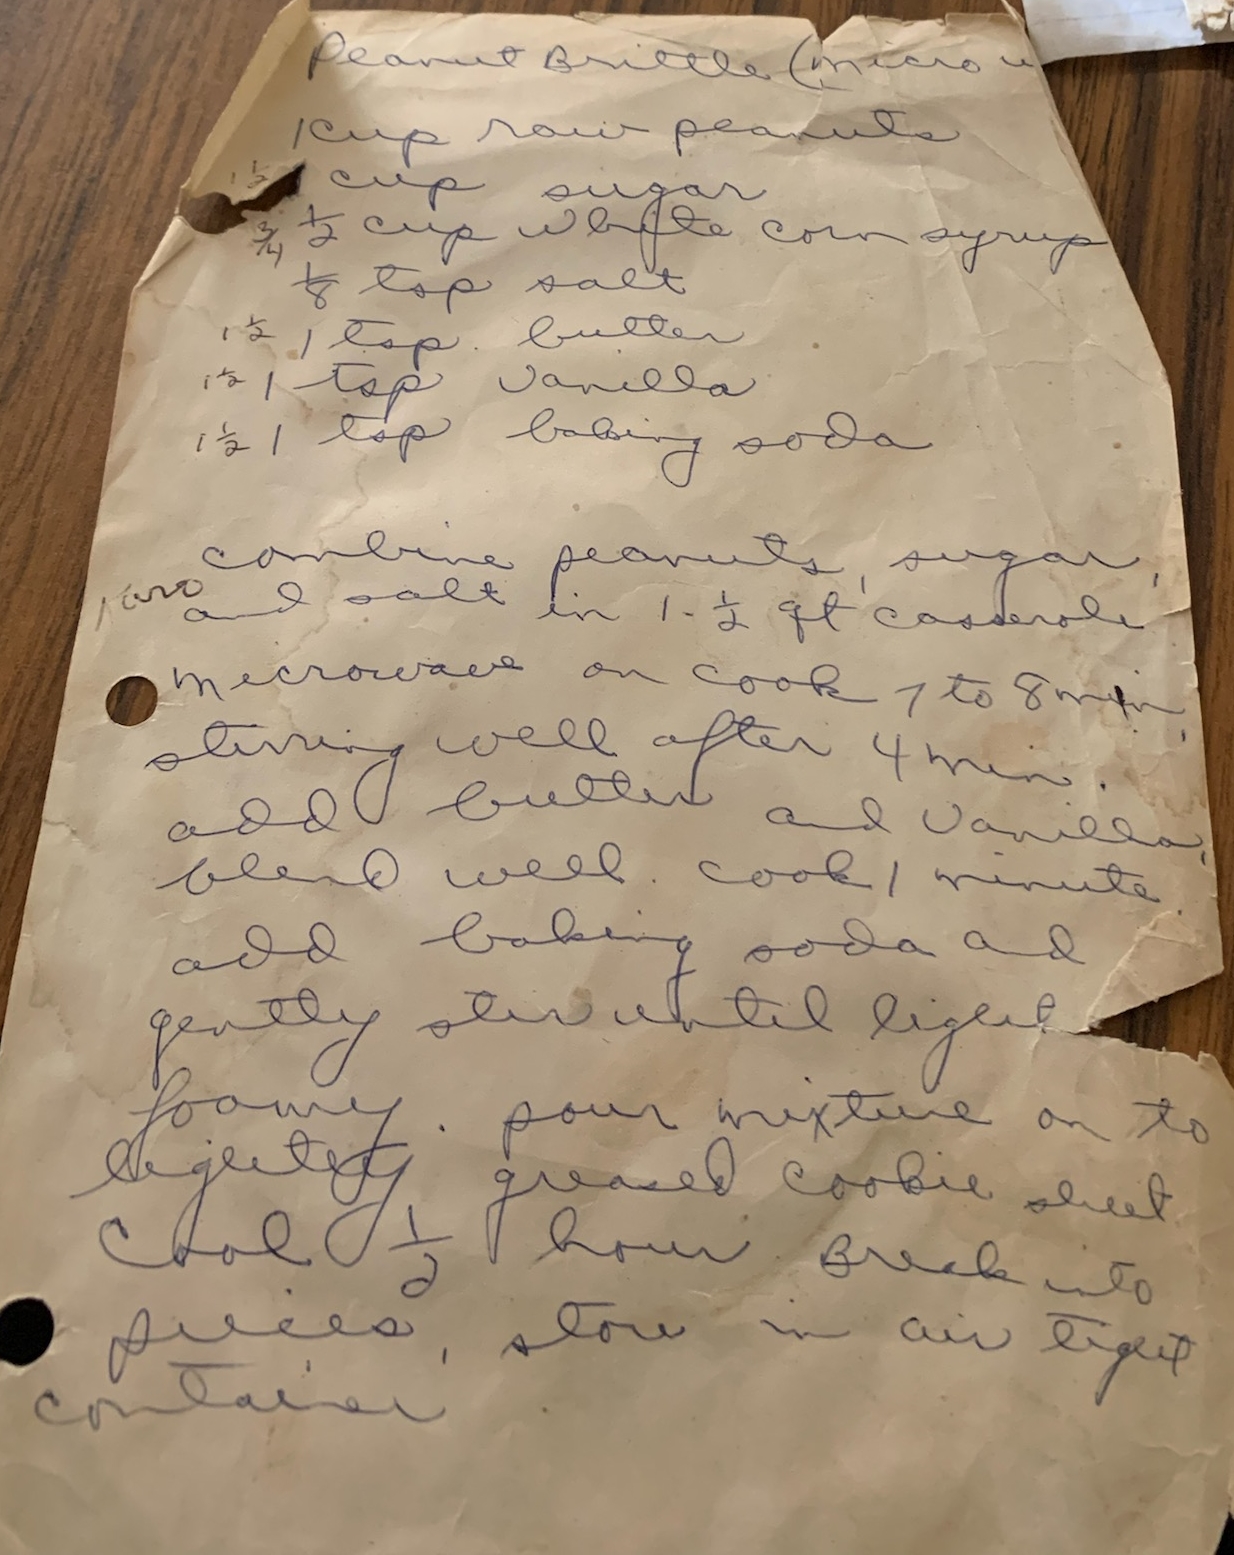 Peanut Brittle (micro w
1 cup raw peanuts
1 1/2 cup sugar
3/4 1/2 cup white corn syrup
1/8 tsp salt
1 1/2 1 tsp. butter
1 1/2 1 tsp vanilla
1 1/2 1 tsp baking soda
combine peanuts, sugar,
karo
and salt in 1-1/2 qt casserole
microwave on cook 7 to 8 min,
stirring well after 4 min.
add butter and vanilla,
blend well. cook 1 minute.
add baking soda and
gently stir until light
foamy. pour mixture on to
lightly greased cookie sheet
Cool 1/2 hour. Break into
pieces, store in air tight
container